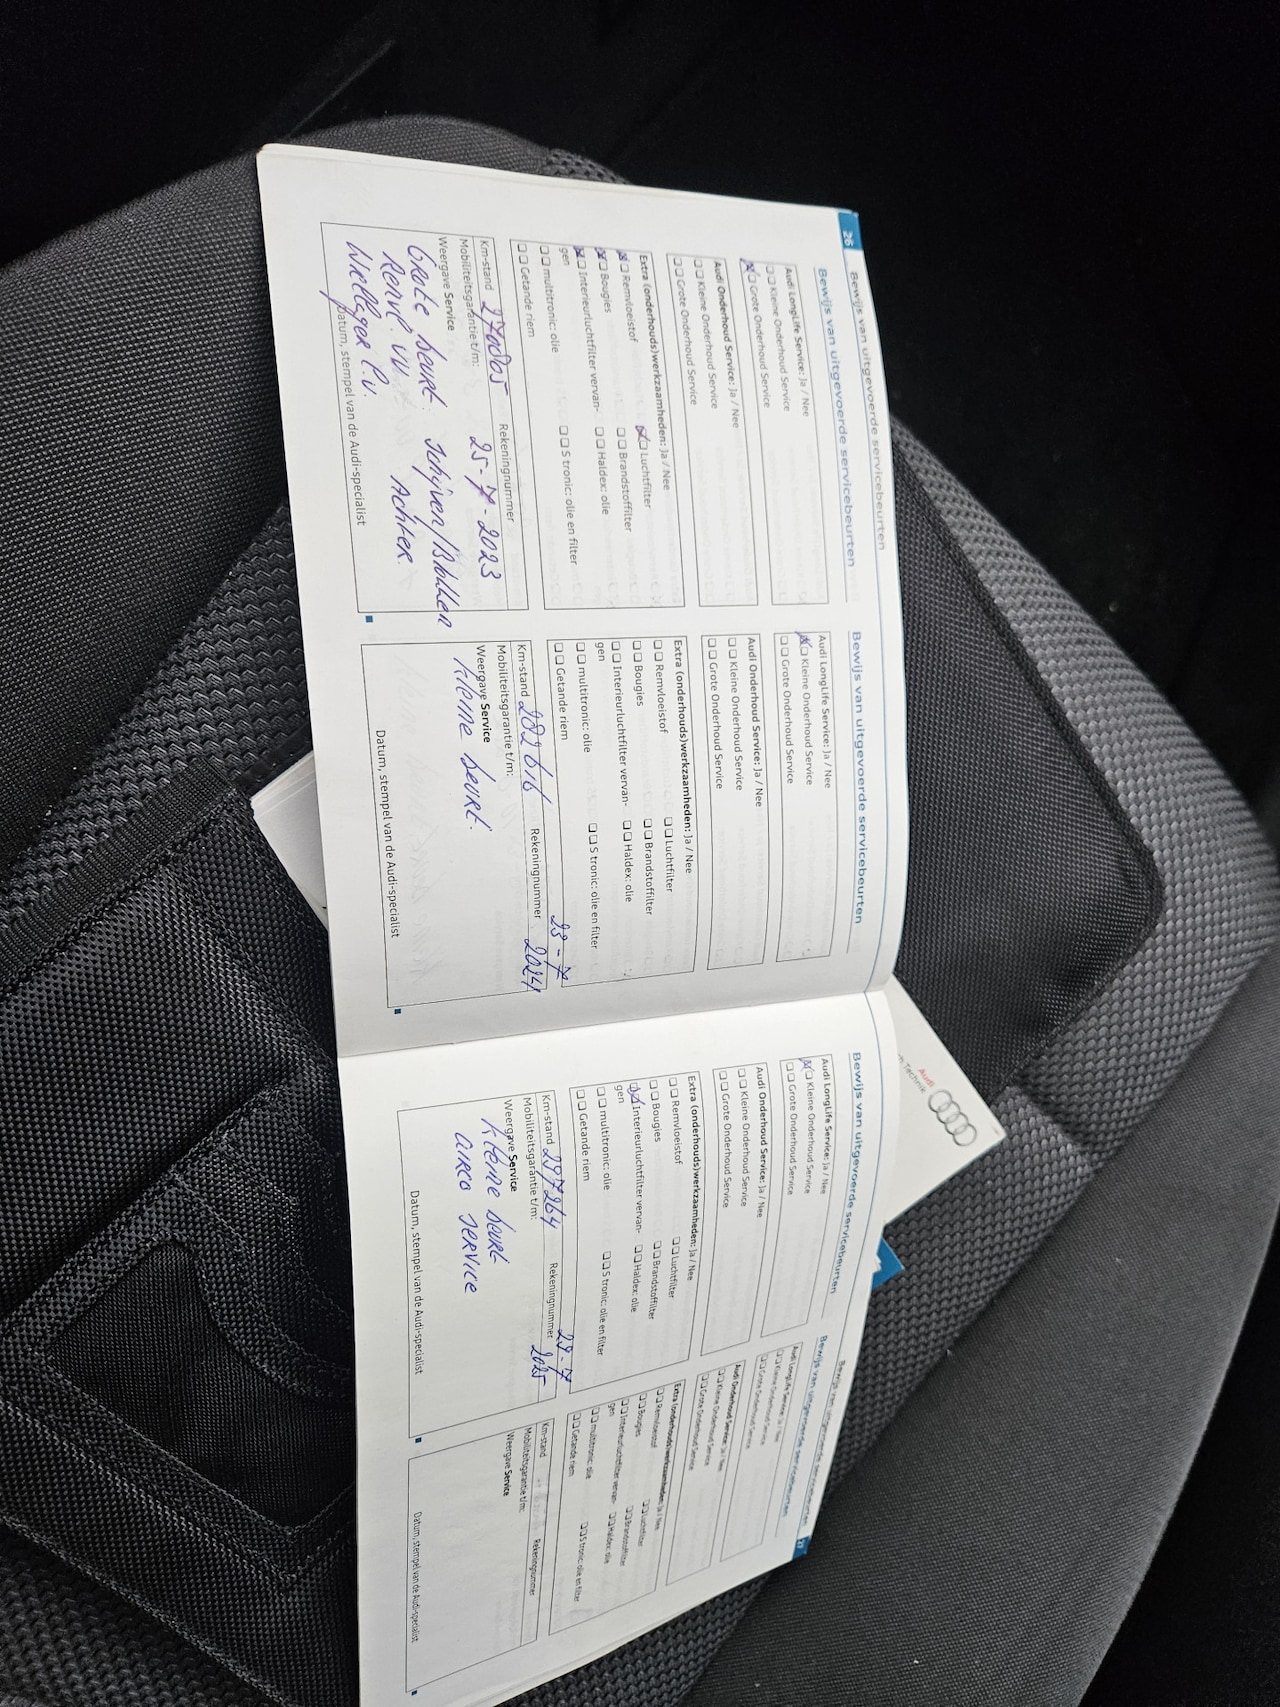 26
Bewijs van uitgevoerde servicebeurten
Bewijs van uitgevoerde servicebeurten
Audi LongLife Service: Ja / Nee
Kleine Onderhoud Service
Grote Onderhoud Service
Audi Onderhoud Service: Ja / Nee
Kleine Onderhoud Service
Grote Onderhoud Service
Extra (onderhouds)werkzaamheden: Ja / Nee
Remvloeistof
Luchtfilter
Bougies
Brandstoffilter
Interieurluchtfilter vervan-
gen
Haldex: olie
multitronic: olie
S tronic: olie en filter
Getande riem
Km-stand 270805
Rekeningnummer
Mobiliteitsgarantie t/m: 25-7-2023
Weergave Service
Grote beurt. Schijven/Blokken
Achter.
Datum, stempel van de Audi-specialist
Bewijs van uitgevoerde servicebeurten
Audi LongLife Service: Ja / Nee
Kleine Onderhoud Service
Grote Onderhoud Service
Audi Onderhoud Service: Ja / Nee
Kleine Onderhoud Service
Grote Onderhoud Service
Extra (onderhouds)werkzaamheden: Ja / Nee
Remvloeistof
Luchtfilter
Bougies
Brandstoffilter
Interieurluchtfilter vervan-
gen
Haldex: olie
multitronic: olie
S tronic: olie en filter
Getande riem
23-7
Km-stand 282616
Rekeningnummer 2024
Mobiliteitsgarantie t/m:
Weergave Service
Kleine beurt.
Datum, stempel van de Audi-specialist
Bewijs van uitgevoerde servicebeurten
Audi LongLife Service: Ja / Nee
Kleine Onderhoud Service
Grote Onderhoud Service
Audi Onderhoud Service: Ja / Nee
Kleine Onderhoud Service
Grote Onderhoud Service
Extra (onderhouds)werkzaamheden: Ja / Nee
Remvloeistof
Luchtfilter
Bougies
Brandstoffilter
Interieurluchtfilter vervan-
gen
Haldex: olie
multitronic: olie
S tronic: olie en filter
Getande riem
29-7
Km-stand 297264
Rekeningnummer 2025
Mobiliteitsgarantie t/m:
Weergave Service
Kleine beurt
airco service
Datum, stempel van de Audi-specialist
27
Bewijs van uitgevoerde servicebeurten
Bewijs van uitgevoerde servicebeurten
Audi LongLife Service: Ja / Nee
Kleine Onderhoud Service
Grote Onderhoud Service
Audi Onderhoud Service: Ja / Nee
Kleine Onderhoud Service
Grote Onderhoud Service
Extra (onderhouds)werkzaamheden: Ja / Nee
Remvloeistof
Luchtfilter
Bougies
Brandstoffilter
Interieurluchtfilter vervan-
gen
Haldex: olie
multitronic: olie
S tronic: olie en filter
Getande riem
Km-stand
Rekeningnummer
Mobiliteitsgarantie t/m:
Weergave Service
Datum, stempel van de Audi-specialist
Audi
Technik